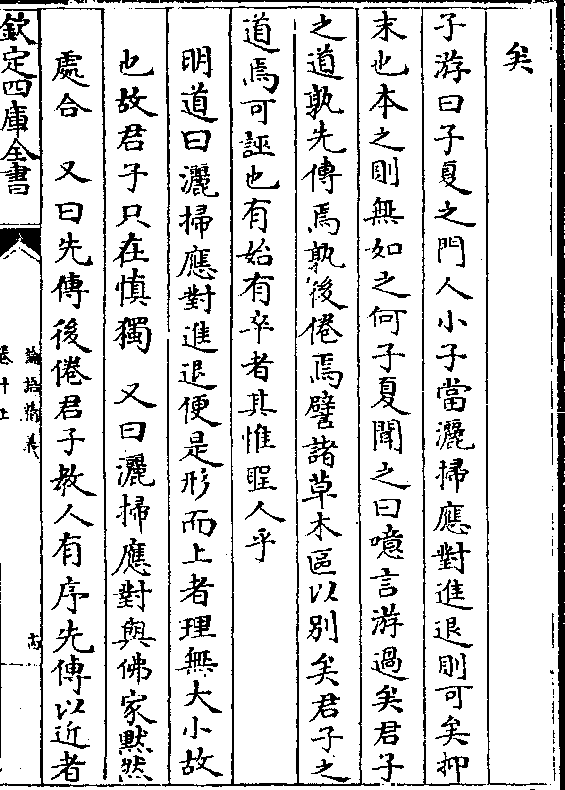 矣
子游曰子夏之門人小子當灑掃應對進退則可矣抑
末也本之則無如之何子夏聞之曰噫言游過矣君子
之道孰先傳焉孰後倦焉譬諸草木區以別矣君子之
道焉可誣也有始有卒者其惟聖人乎
明道曰灑掃應對進退便是形而上者理無大小故
也故君子只在慎獨 又曰灑掃應對與佛家黙然
處合 又曰先傳後倦君子教人有序先傳以近者
欽定四庫全書
論語精義